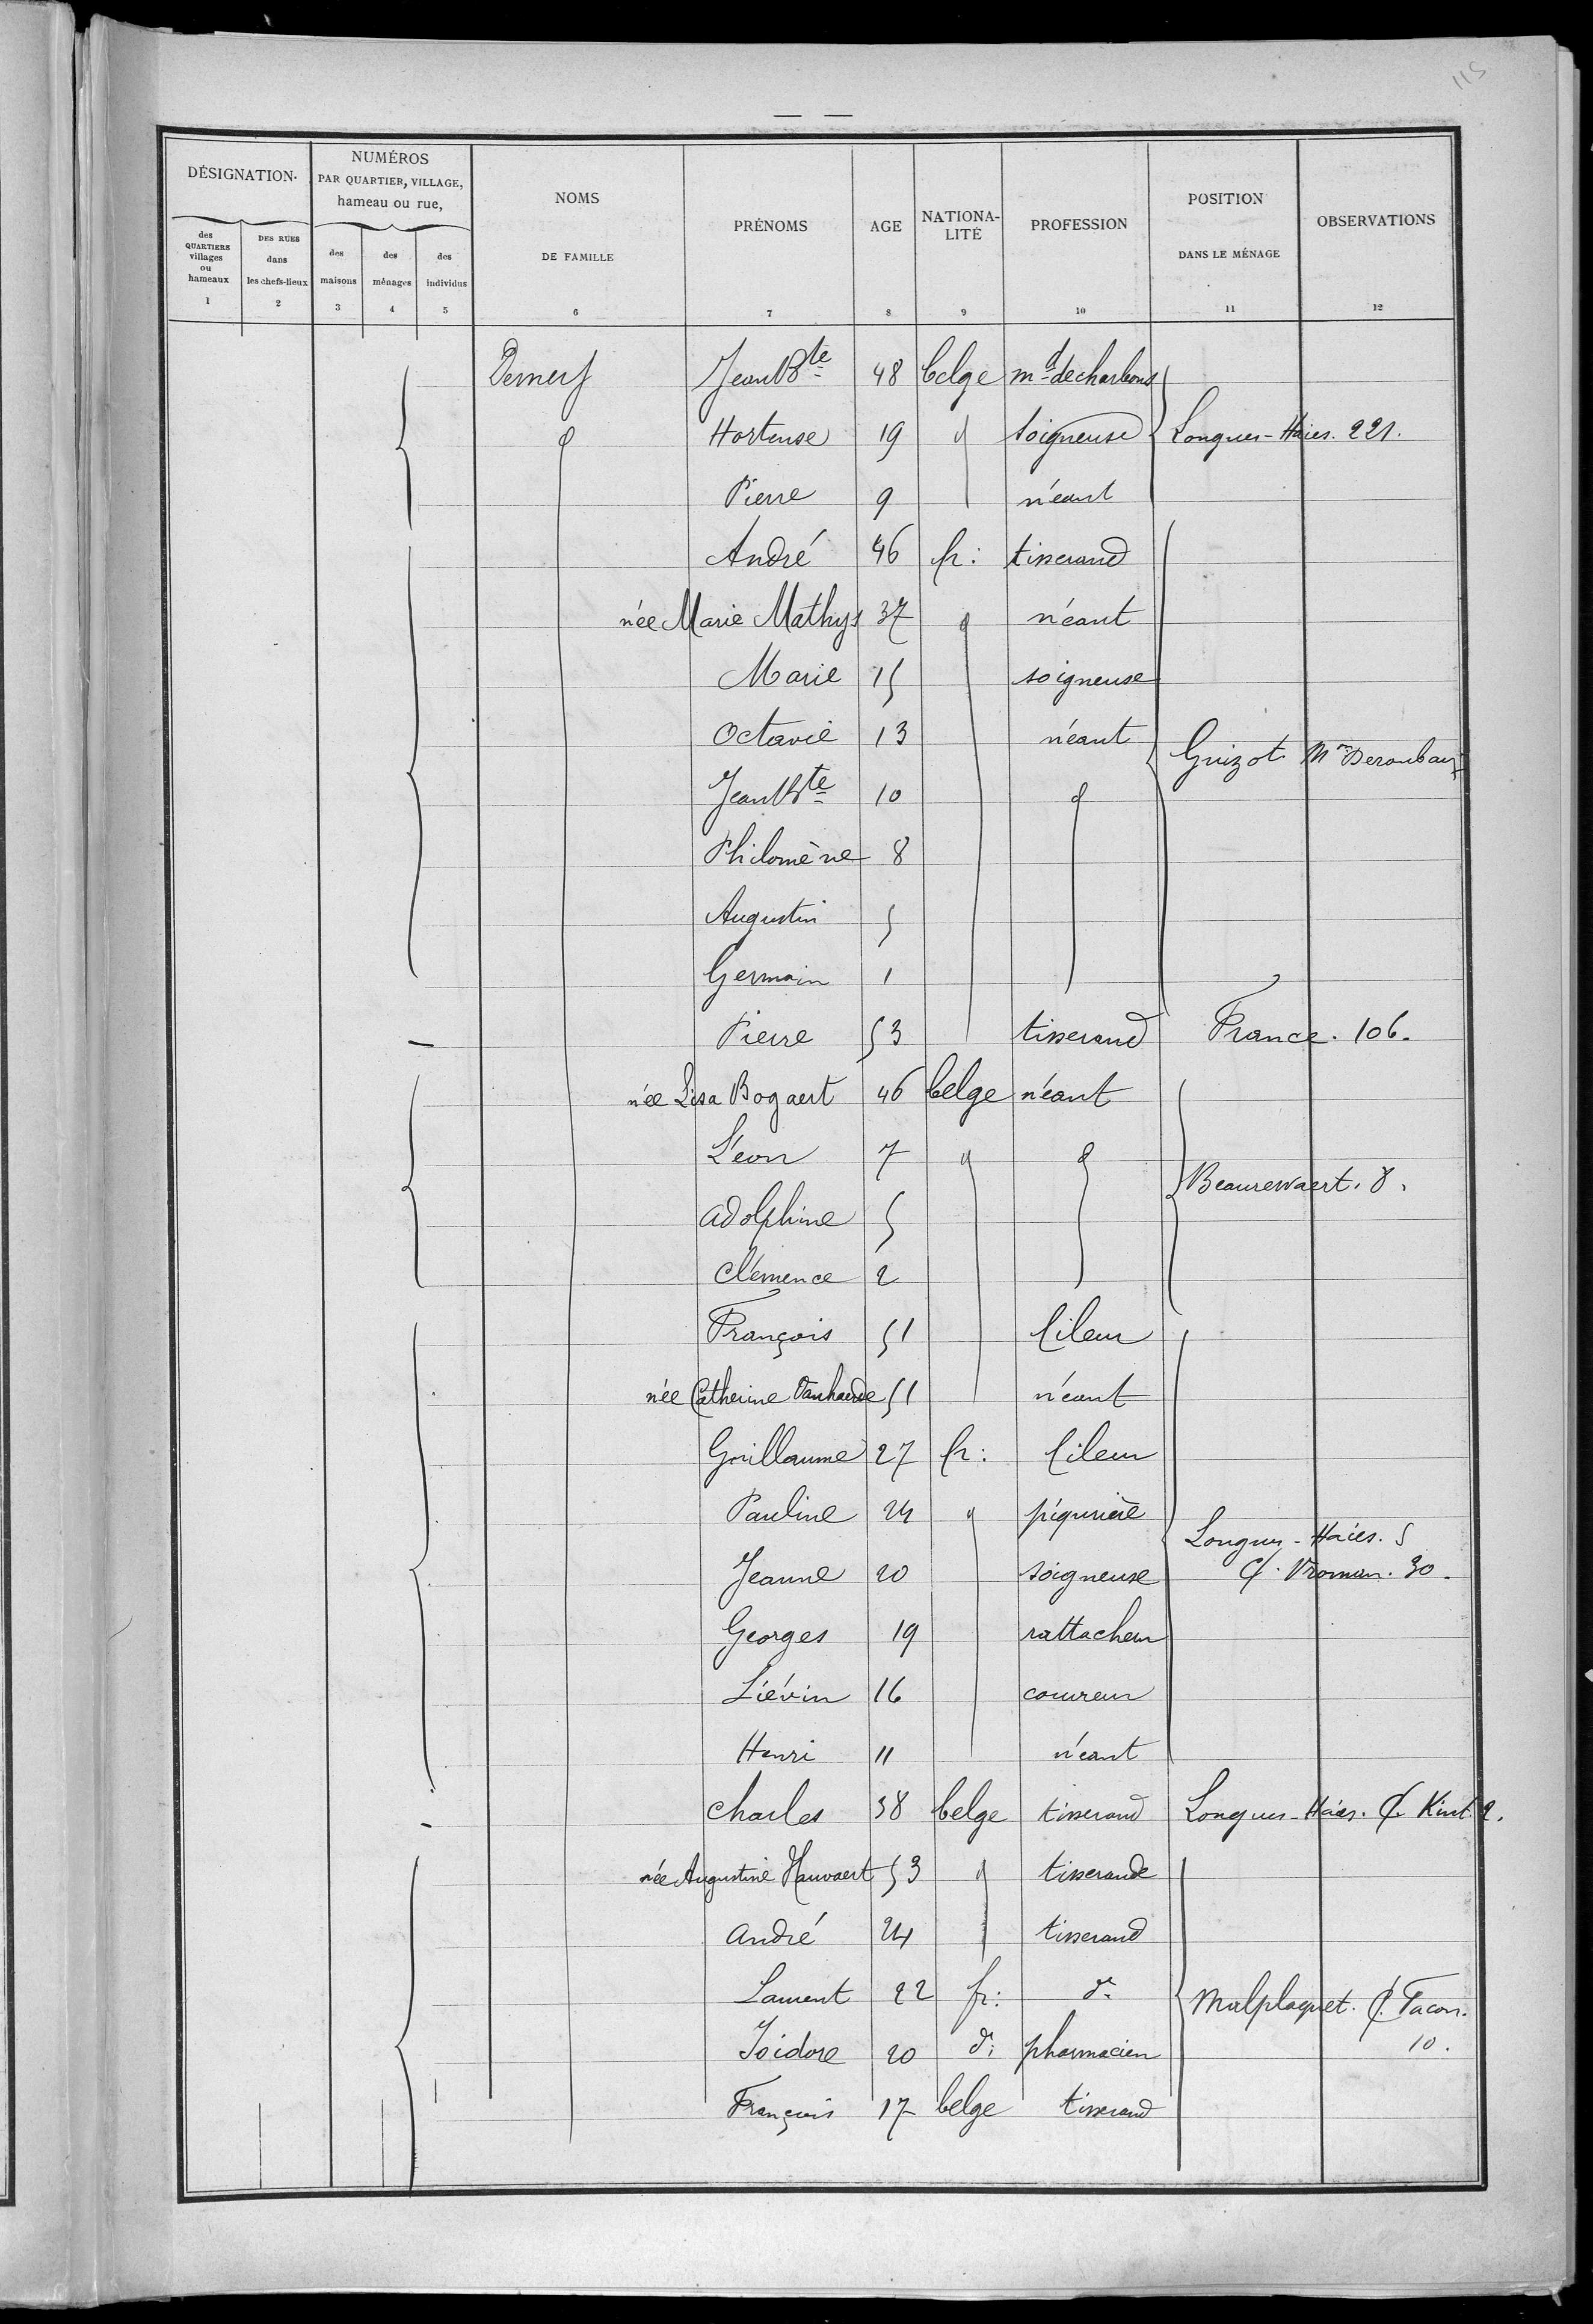 115
— —
DÉSIGNATION.
NUMÉROS
PAR QUARTIER, VILLAGE,
hameau ou rue,
des QUARTIERS villages ou hameaux
DES RUES dans les chefs-lieux
des maisons
des ménages
des individus
NOMS DE FAMILLE
PRÉNOMS
AGE
NATIONA-LITÉ
PROFESSION
POSITION DANS LE MÉNAGE
OBSERVATIONS
1 2 3 4 5 6 7 8 9 10 11 12
Jean Bte 48 belge md de charbons
d Hortense 19 d soigneuse Longues-Haies. 221.
Pierre 9 néant
André 46 fr: tisserand
née Marie Mathys 37 d néant
Marie 15 soigneuse
Octavie 13 néant Guizot Mon Deroubaix
Jean Bte 10 d
Philomène 8
Augustin 5
Germain 1
— Pierre 53 tisserand France. 106.
née Lisa Bogaert 46 belge néant
Léon 7 d d Beaurewaert. 8.
Adolphine 5
Clémence 2
François 51 fileur
née Catherine 51 néant
Guillaume 27 fr: fileur
Pauline 24 d piqurière
Longues-Haies. 5
Jeanne 20 soigneuse C. Vroman. 30.
Georges 19 rattacheur
Liévin 16 coureur
Henri 11 néant
- Charles 38 belge tisserand Longues-Haies. C. Kint. 2.
née Augustine Hauvaert 53 d tisserande
André 24 tisserand
Laurent 22 fr: do Malplaquet. C. Tacon.
Isidore 20 do: pharmacien 10.
François 17 belge tisserand